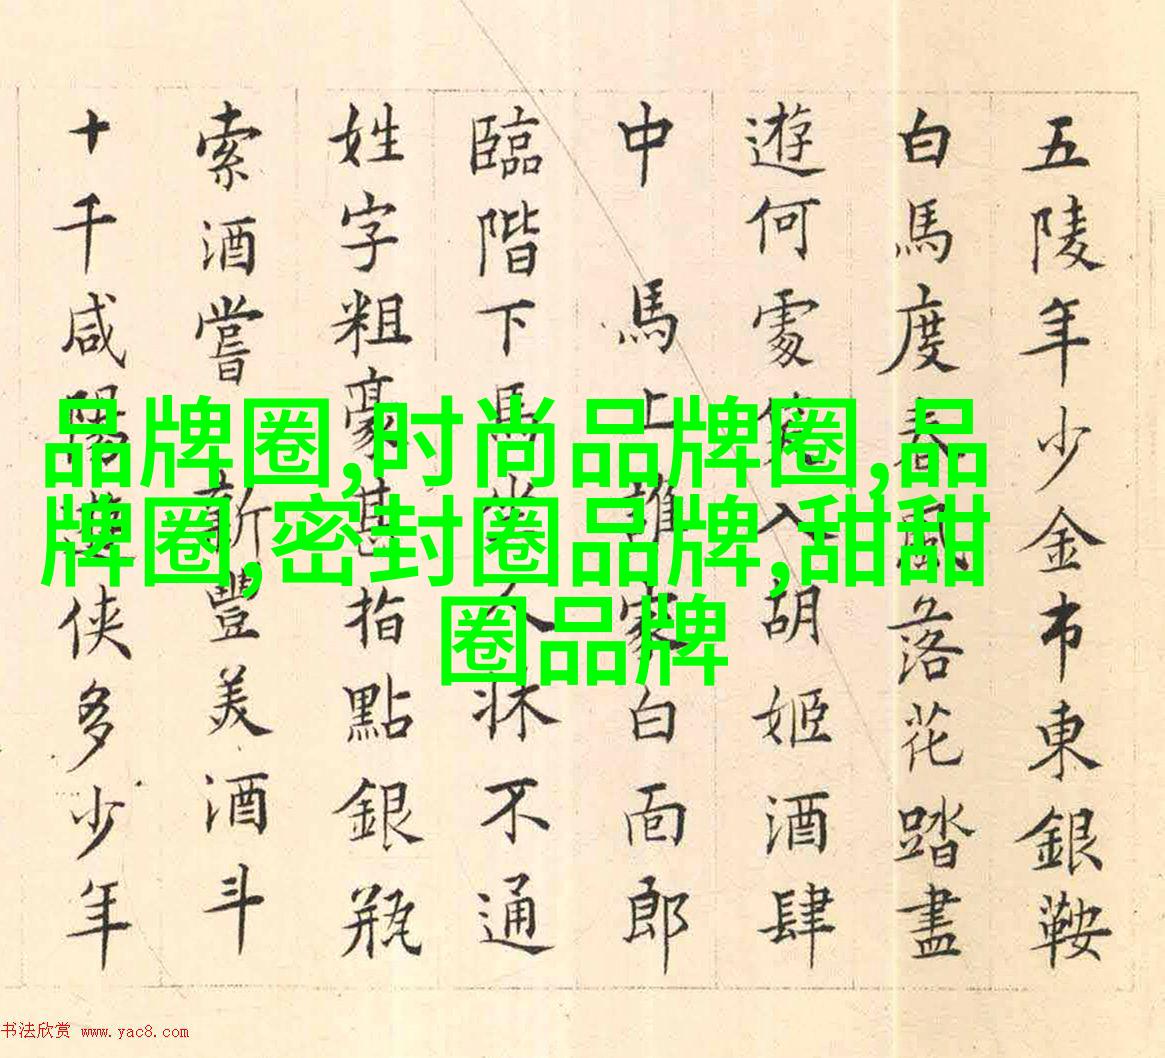 五陵年少金市東銀鞍
白馬度春風落花踏盡
遊何處笑入胡姬酒肆
中 馬上誰家白面郎
臨階下馬坐人牀不通
姓字粗豪甚指點銀瓶
索酒嘗 新豐美酒斗
十千咸陽遊侠多少年
品牌圈,时尚品牌圈,品
牌圈,密封圈品牌,甜甜
圈品牌
书法欣赏 www.yac8.com